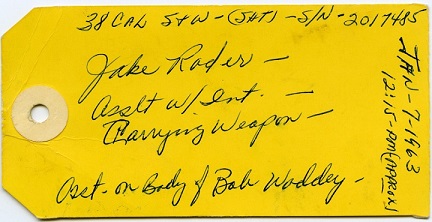 38 CAL S+W - (SHT) - S/N - 2017485
Jake Rader -
Asslt w/ Int. -
Carrying Weapon -
Asst. on Body of Bob Waddey -
JAN-7-1963
12:15-PM (APPROX)